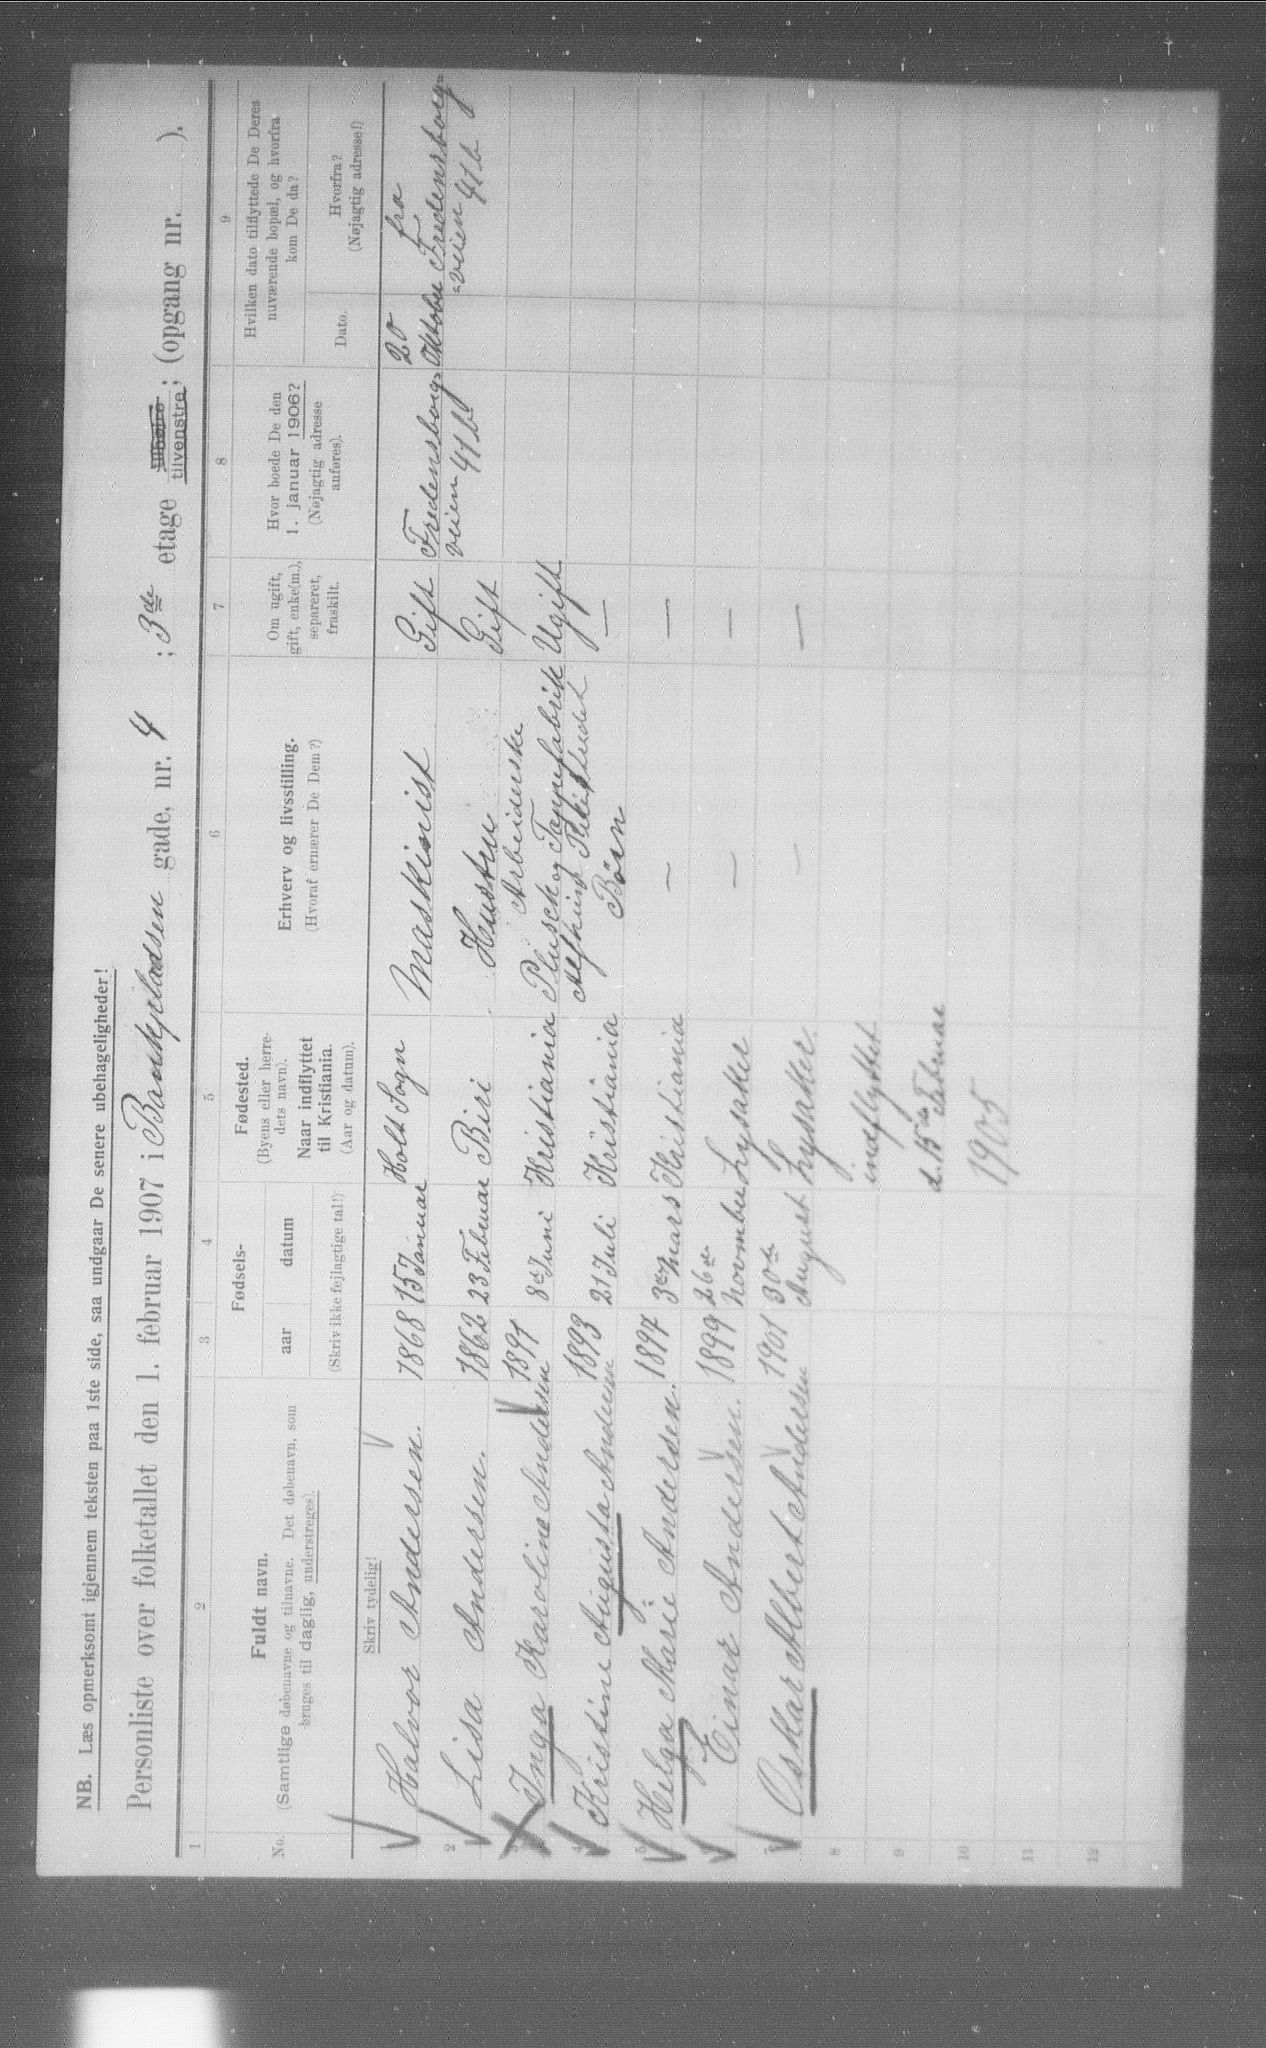 NB. Læs opmerksomt igjennem teksten paa 1ste side, saa undgaar De senere ubehageligheder!
Personliste over folketallet den 1. februar 1907 i gade, nr. 4 ; 3de etage tilvenstre; (opgang nr. ).
1 2 3 4 5 6 7 8 9
No.
Fuldt navn.
(Samtlige døbenavne og tilnavne. Det døbenavn, som
bruges til daglig, understreges).
Fødsels-
aar datum
(Skriv ikke feilagtige tal!)
Fødested.
(Byens eller herre-
dets navn).
Naar indflyttet
til Kristiania.
(Aar og datum).
Erhverv og livsstilling.
(Hvoraf ernærer De Dem?)
Om ugift,
gift, enke(m.),
separeret,
fraskilt.
Hvor boede De den
1. januar 1906?
(Nøjagtig adresse
anføres).
Hvilken dato tilflyttede De Deres
nuværende bopæl, og hvorfra
kom De da?
Dato.
Hvorfra?
(Nøjagtig adresse!)
Skriv tydelig!
1 Halvor Andersen. 1868 15 Januar Holt Sogn Maskinist Gift Fredensborg-
veien 41b 20 Oktober fra Fredensborg-
veien 41b
2 Lisa Andersen. 1862 23 Februar Biri Hustru Gift
3 Inga Karoline Andersen 1891 8de Juni Kristiania Arbeiderske
Plusch og Tappefabrik Ugift
4 Kristine Augusta Andersen 1893 21 Juli Kristiania Børn —
5 Helga Marie Andersen. 1897 3die Mars Kristiania — —
6 Einar Andersen. 1899 26de November Lysaker — —
7 Oskar Albert Andersen 1901 30de August Lysaker. — —
8 indflyttet
9 d. 15de Februar
10 1905
11
12